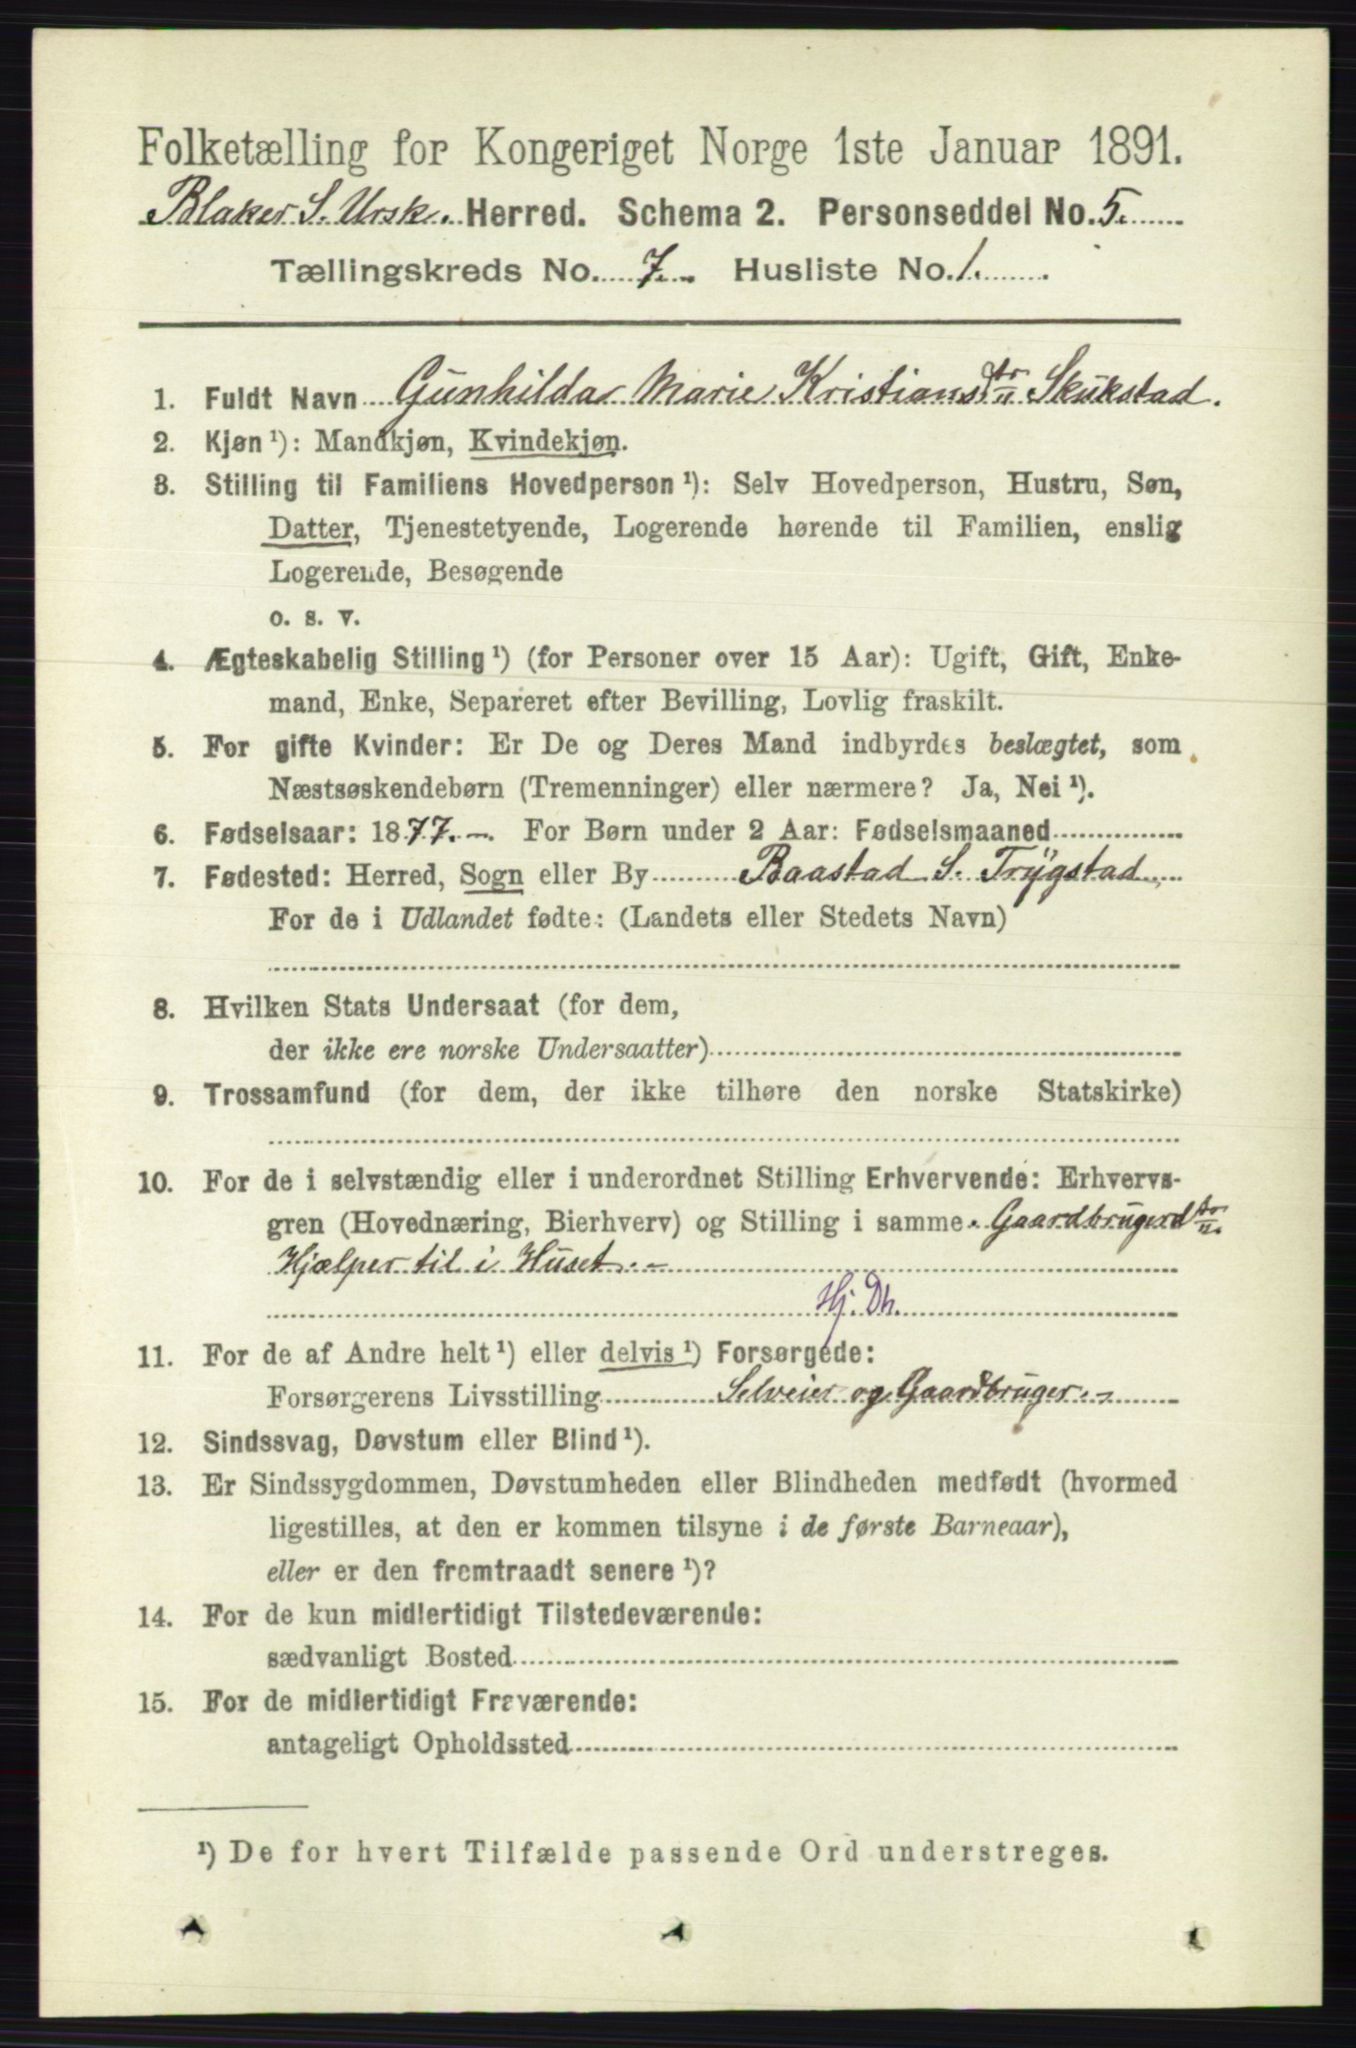 Folketælling for Kongeriget Norge 1ste Januar 1891.
Blaker S. Ursk. Herred. Schema 2. Personseddel No. 5.
Tællingskreds No. 7. Husliste No. 1.
1. Fuldt Navn Gunhilda Marie Kristiansdtr Skukstad.
2. Kjøn ¹): Mandkjøn, Kvindekjøn.
3. Stilling til Familiens Hovedperson ¹): Selv Hovedperson, Hustru, Søn,
Datter, Tjenestetyende, Logerende hørende til Familien, enslig
Logerende, Besøgende
o. s. v.
4. Ægteskabelig Stilling ¹) (for Personer over 15 Aar): Ugift, Gift, Enke-
mand, Enke, Separeret efter Bevilling, Lovlig fraskilt.
5. For gifte Kvinder: Er De og Deres Mand indbyrdes beslægtet, som
Næstsøskendebørn (Tremenninger) eller nærmere? Ja, Nei ¹).
6. Fødselsaar: 1877. For Børn under 2 Aar: Fødselsmaaned
7. Fødested: Herred, Sogn eller By Baastad S. Trygstad
For de i Udlandet fødte: (Landets eller Stedets Navn)
8. Hvilken Stats Undersaat (for dem,
der ikke ere norske Undersaatter)
9. Trossamfund (for dem, der ikke tilhøre den norske Statskirke)
10. For de i selvstændig eller i underordnet Stilling Erhvervende: Erhvervs-
gren (Hovednæring, Bierhverv) og Stilling i samme. Gaardbrugerdtr.
Hjælper til i Huset.
Hj. Dh.
11. For de af Andre helt ¹) eller delvis ¹) Forsørgede:
Forsørgerens Livsstilling Selveier og Gaardbruger
12. Sindssvag, Døvstum eller Blind ¹).
13. Er Sindssygdommen, Døvstumheden eller Blindheden medfødt (hvormed
ligestilles, at den er kommen tilsyne i de første Barneaar),
eller er den fremtraadt senere ¹)?
14. For de kun midlertidigt Tilstedeværende:
sædvanligt Bosted
15. For de midlertidigt Fraværende:
antageligt Opholdssted
¹) De for hvert Tilfælde passende Ord understreges.